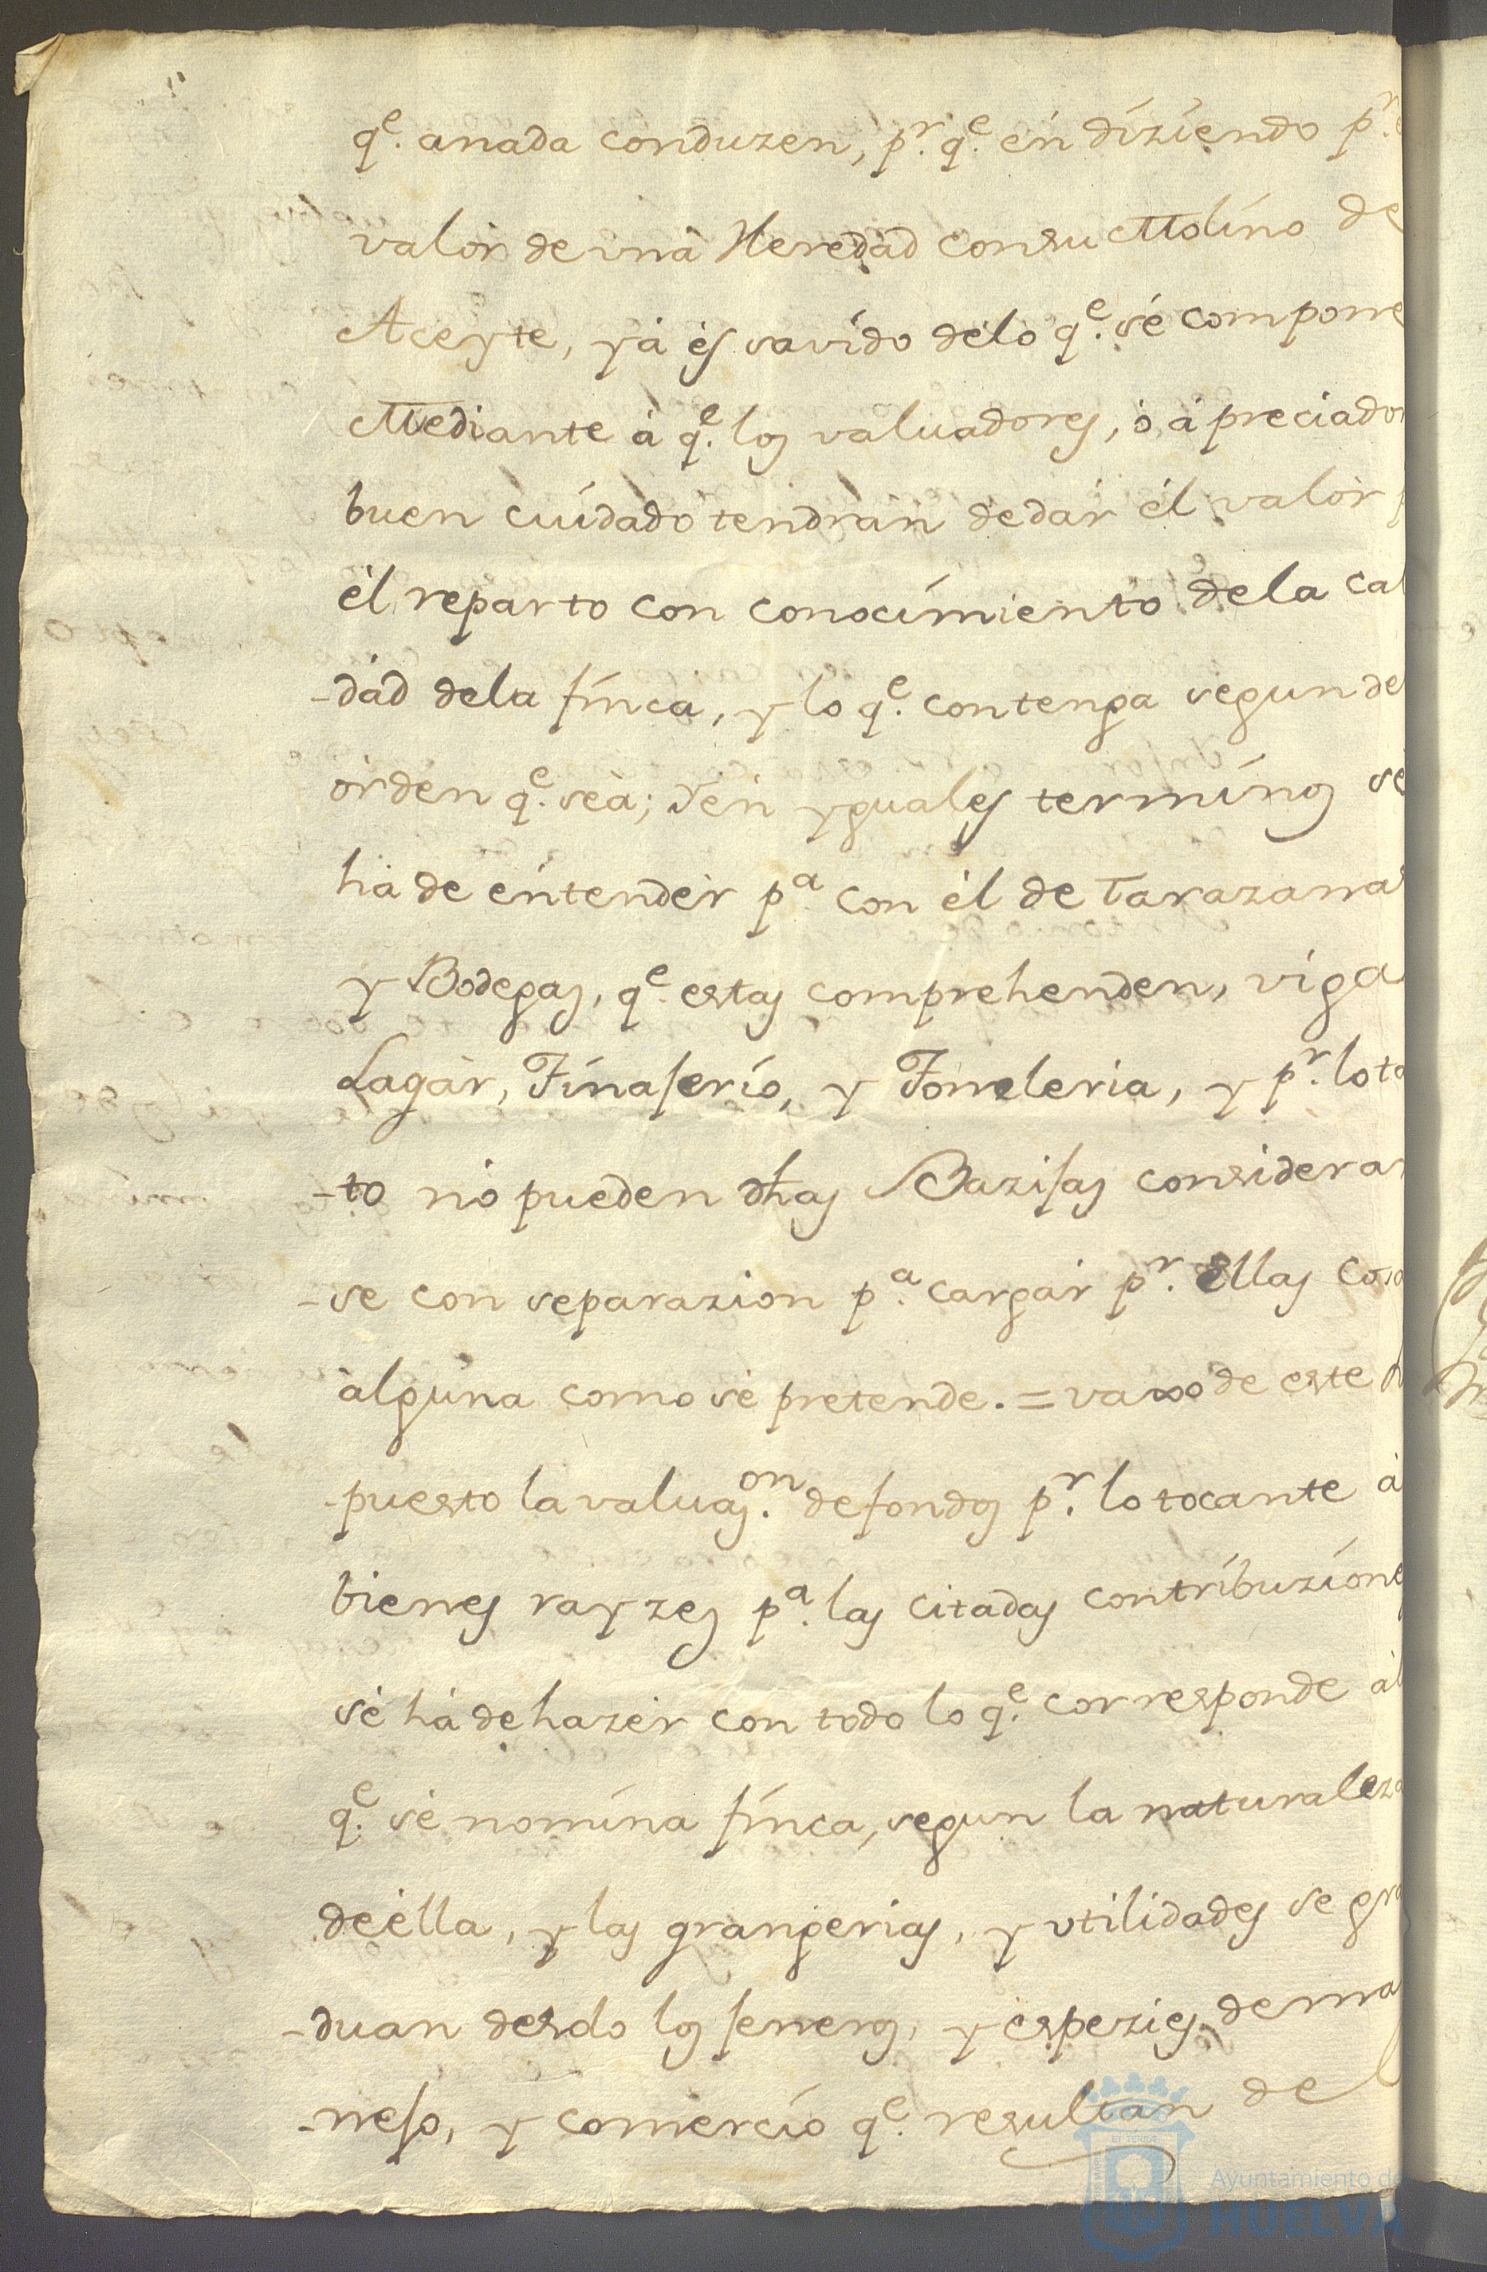 qe. anada conduzen, pr. qe. én díziendo pr.
valór de vna Heredad con su Molíno de
Aceyte, yá és savído délo qe. sé compone
Mediante á qe. los valuadores, ó ápreciador
buen cuídado tendrán de dár él valór
él reparto con conocímiento dela cal
-dád dela fínca, y lo qe. contenga segun de
órden qe. seá; Y én yguales termínos se
há de énténdér pa. con él de Tarazanas
y Bodegas, qe. estas comprehenden, viga
Lagár, Tinaferío, y Toneleria, y pr. lo ta
-to nó pueden dhas Bazijas considerar
-se con separazion pa. cargár pr. Ellas cosa
álguna como sé pretende. = vaxo de este
-puesto la valuason. de fondos pr. lo tocante á
bienes rayzes pa. las citadas contríbuzíones
sé há de hazér con todo lo qe. corresponde ál
qe. sé nomína fínca, segun la naturaleza
de élla, y las grangerias, y vtilidades se gra
-duan desdo los feneros, y espezies de ma
-nejo, y comercío qe. resultan de
Ayuntamiento de
HUELVA